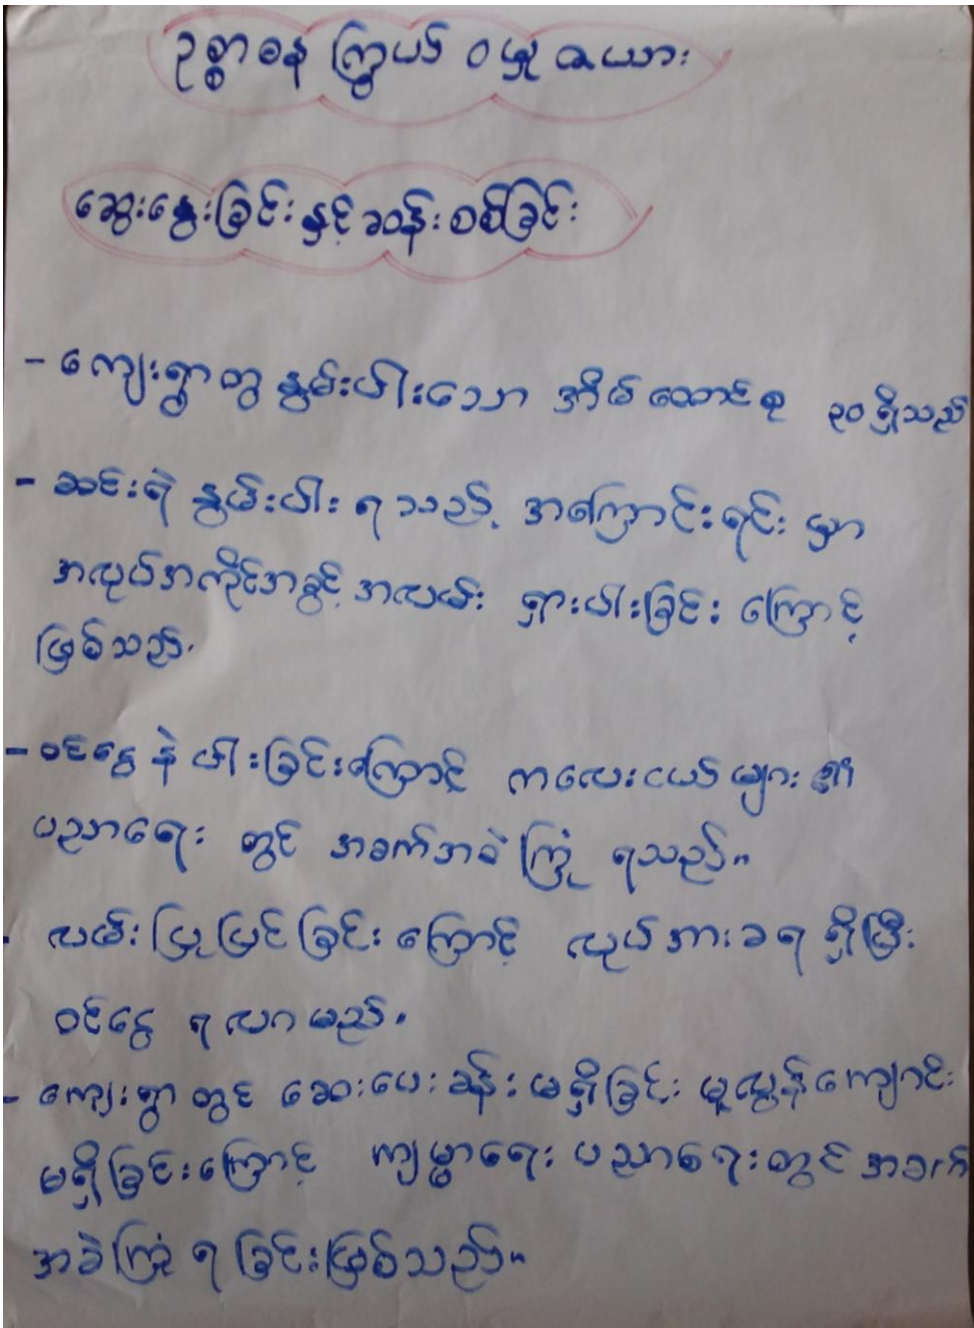 ဥစ္စာဓန ကြွယ်ဝမှု ဇယား
ဆွေးနွေးခြင်းနှင့် ဆန်းစစ်ခြင်း
- ကျေးရွာတွ နွမ်းပါးသော အိမ်ထောင်စု ၃၀ ရှိသည်
- ဆင်းရဲ နွမ်းပါး ရသည့် အကြောင်းရင်း မှာ
အလုပ်အကိုင်အခွင့် အလမ်း ရှားပါးခြင်း ကြောင့်
ဖြစ်သည်.
- ဝင်ငွေ နဲ ပါးခြင်းကြောင့် ကလေးငယ် များ ၏
ပညာရေး တွင် အခက်အခဲ ကြုံ ရသည်။
- လမ်း ပြုပြင်ခြင်း ကြောင့် လုပ်အားခ ရ ရှိပြီး
ဝင်ငွေ ရ လာ မည်.
- ကျေးရွာ တွင် ဆေးပေးခန်း မရှိခြင်း မူလွန်ကျောင်း
မရှိခြင်းကြောင့် ကျမ္မာရေး ပညာရေး တွင် အခက်
အခဲ ကြုံ ရ ခြင်း ဖြစ်သည်။